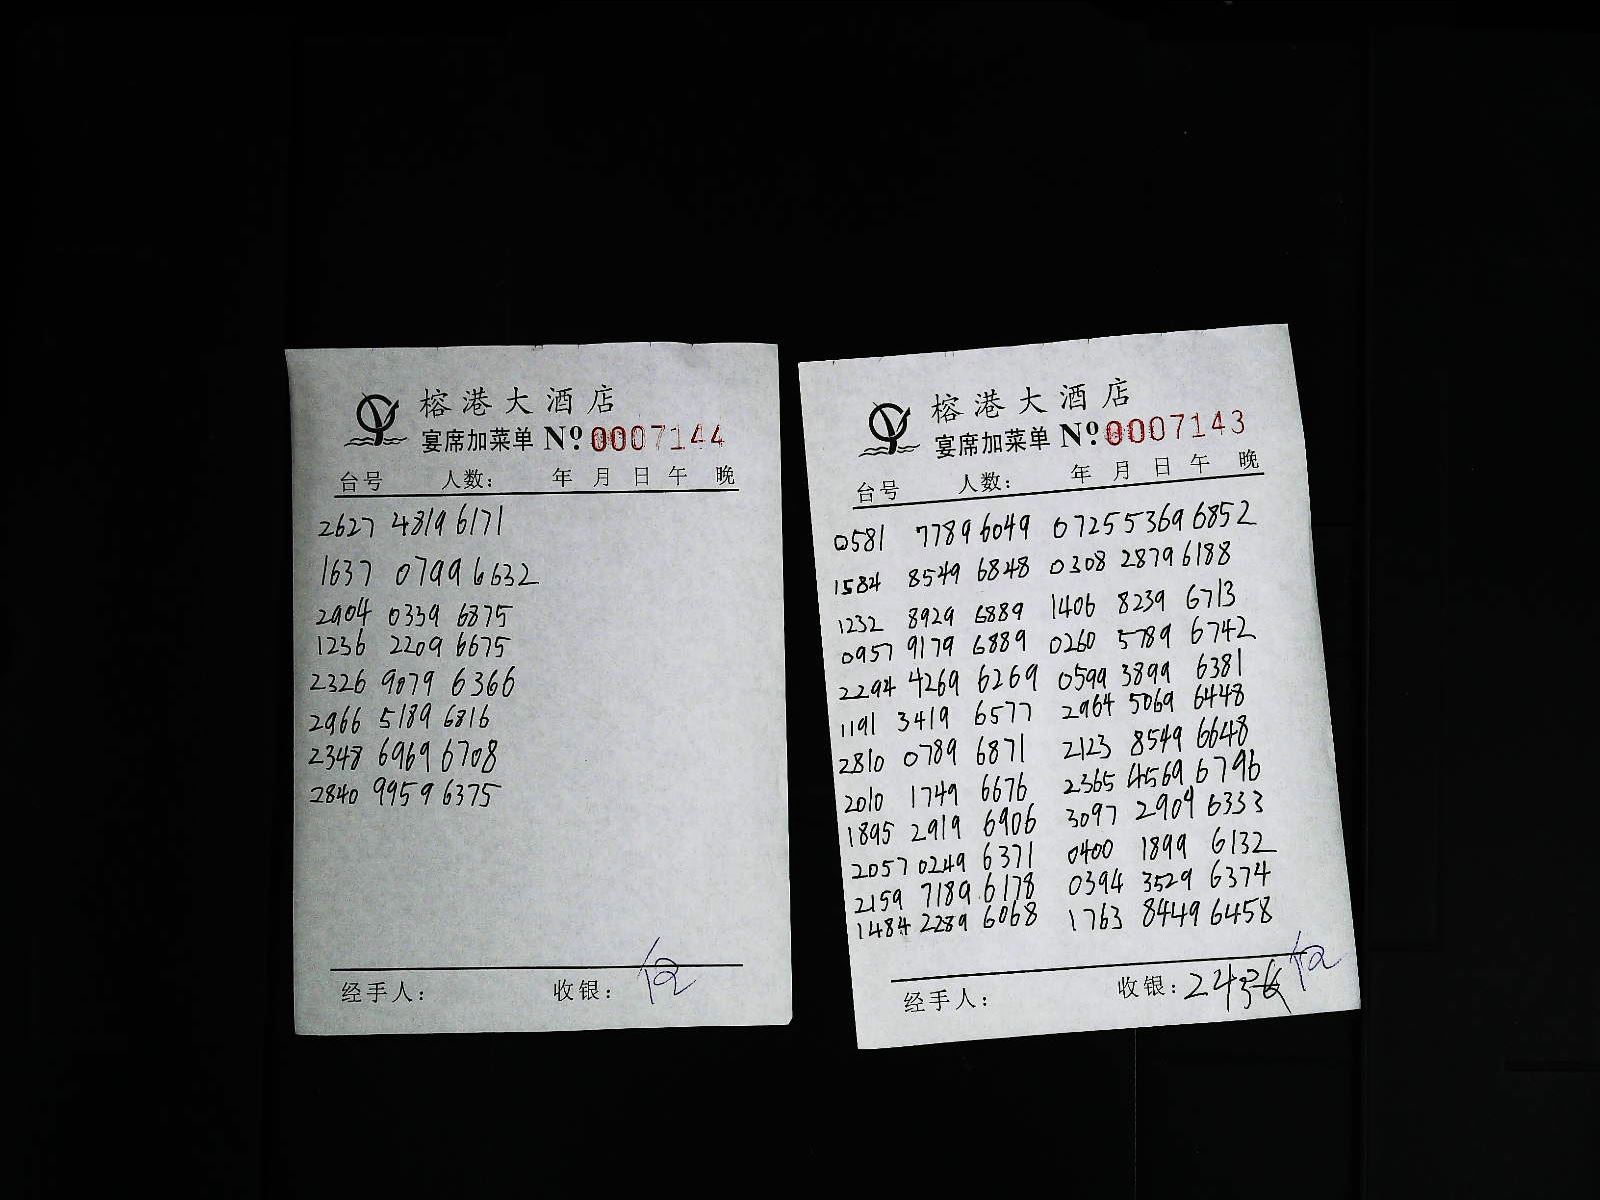 榕港大酒店
宴席加菜单 Nº 0007144
台号 人数： 年 月 日 午 晚
2627 4819 6171
1637 0799 6632
2904 0339 6875
1236 2209 6675
2326 9079 6366
2966 5189 6816
2348 6969 6708
2840 9959 6375
经手人： 收银：
榕港大酒店
宴席加菜单 Nº 0007143
台号 人数： 年 月 日 午 晚
0581 7789 6049 0725 5369 6852
1584 8549 6848 0308 2879 6188
1232 8929 6889 1406 8239 6713
0957 9179 6889 0260 5789 6742
2294 4269 6269 0599 3899 6381
1191 3419 6577 2964 5069 6448
2810 0789 6871 2123 8549 6648
2010 1749 6676 2365 4569 6796
1895 2919 6906 3097 2909 6333
2057 0249 6371 0400 1899 6132
2159 7189 6178 0394 3529 6374
1484 2289 6068 1763 8449 6458
经手人： 收银：24张